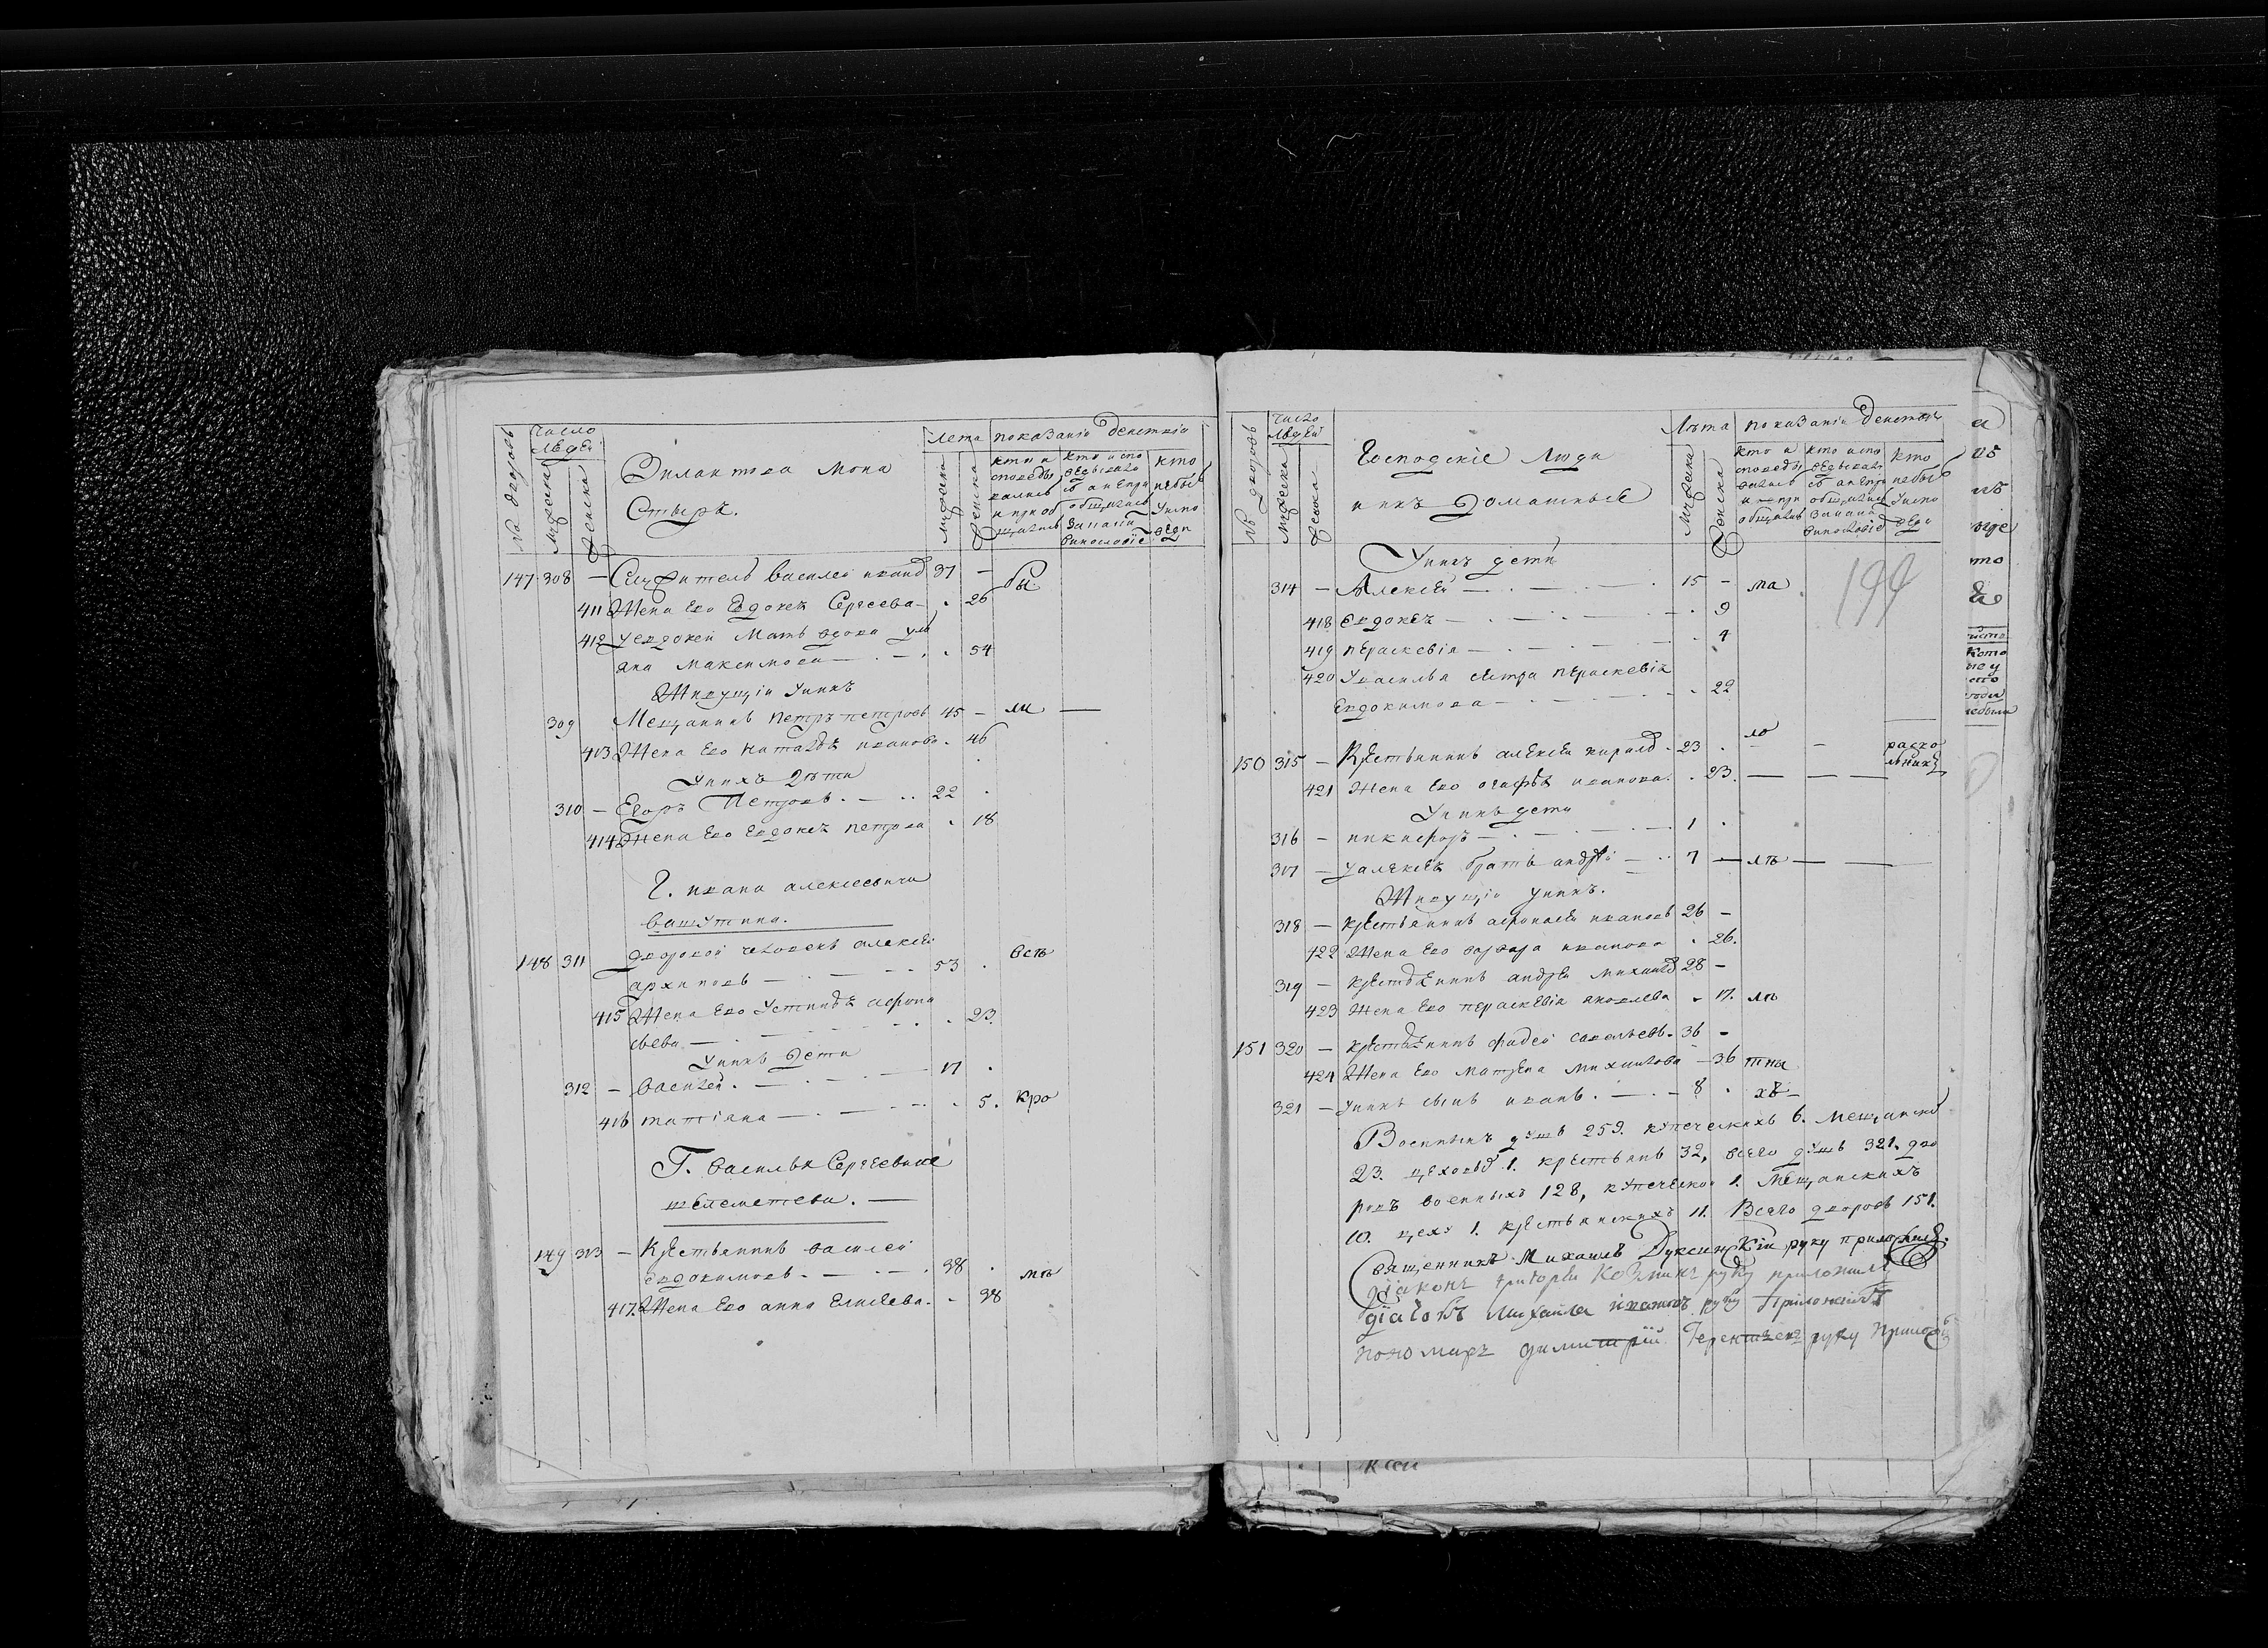 № дворовъ
число
людей
мужеска
женска
Филантова Мона
Стыря.
лета
мужска
женска
показаніи действія
кто и
споведы
вались
и приоб
щались
кто испо
ведывалъ
а не при
общались
за какім
винословіе
кто
небылъ
у испо
веди
147 308 — Служитель василей иванов 37 —
бы
411 Жена ево Евдокея Сергеева — 26
412 у евдокеи мать вдова уль
яна максимова — 54
Живущіи у них
309 Мещанинъ петръ петровъ 45 — ли —
413 Жена ево наталья иванова. 46
у них дѣти
310 — Егоръ Петровъ. — 22
414 Жена ево евдокея петрова 18
Г. ивана алексеевича
вашутина.
148 311 дворовой человекъ алексеи
архиповъ — 53 .
всъ
415 Жена ево устинья афона
сьева — 23.
у них дети
312 — василеи. — 17 .
416 татіяна — 5. кро
Г. василья Сергеевича
шелеметева. —
149 313 — Крестьянинъ василеи
евдокимовъ. — 38 .
мѣ
417. Жена ево анна елисеева. — 38
№ дворовъ
число
людей
мужеска
женска
Господскіе люди
и ихъ домашніе
лѣта
мужеска
женска
показаніи действія
кто и
споведы
вались
и при
общались
кто испо
ведывалъ
а не при
общались
за какім
винословіе
кто
небылъ
у испо
веди
у них дети
314 — Алексей — 15 — та
199
418 евдокея — 9
419 перасковія — 4
420 у василья сестра перасковія
евдокимова — 22
150 315 — Крестьянинъ алексеи кирилов. 23 . ло — раско
льники
421 жена ево огафья иванова. 23. — — —
у них дети
316 — никифоръ — 1 .
317 — у алексея братъ андреи — 7 — лѣ — —
Живущіи у них.
318 — крестьянинъ афонасеи ивановъ 26 —
422 жена ево варвара иванова . 26.
319 — крестьянинъ андреи михаилов 28 —
423 жена ево перасковія яковлева — 17. лѣ
151 320 — крестьянинъ фадеи савельевъ. 36 —
424 Жена ево матрена михаилова — 36 тны
321 — у них сынъ иванъ. — 8 . хъ —
Военныхъ душъ 259. купеческихъ 6. мещанских
23. цеховых 1. крестьянъ 32, всего душъ 321. дво
ровъ военныхъ 128, купеческои 1. мещанскихъ
10. цехо 1. крестьянскихъ 11. Всего дворовъ 151.
Священникъ Михаилъ Дуксинскіи руку приложилъ.
діаконъ григореи Козминъ руку приложилъ
діачокъ михаила ивановъ руку приложилъ
пономарь димитрій Терентьевъ руку приложилъ